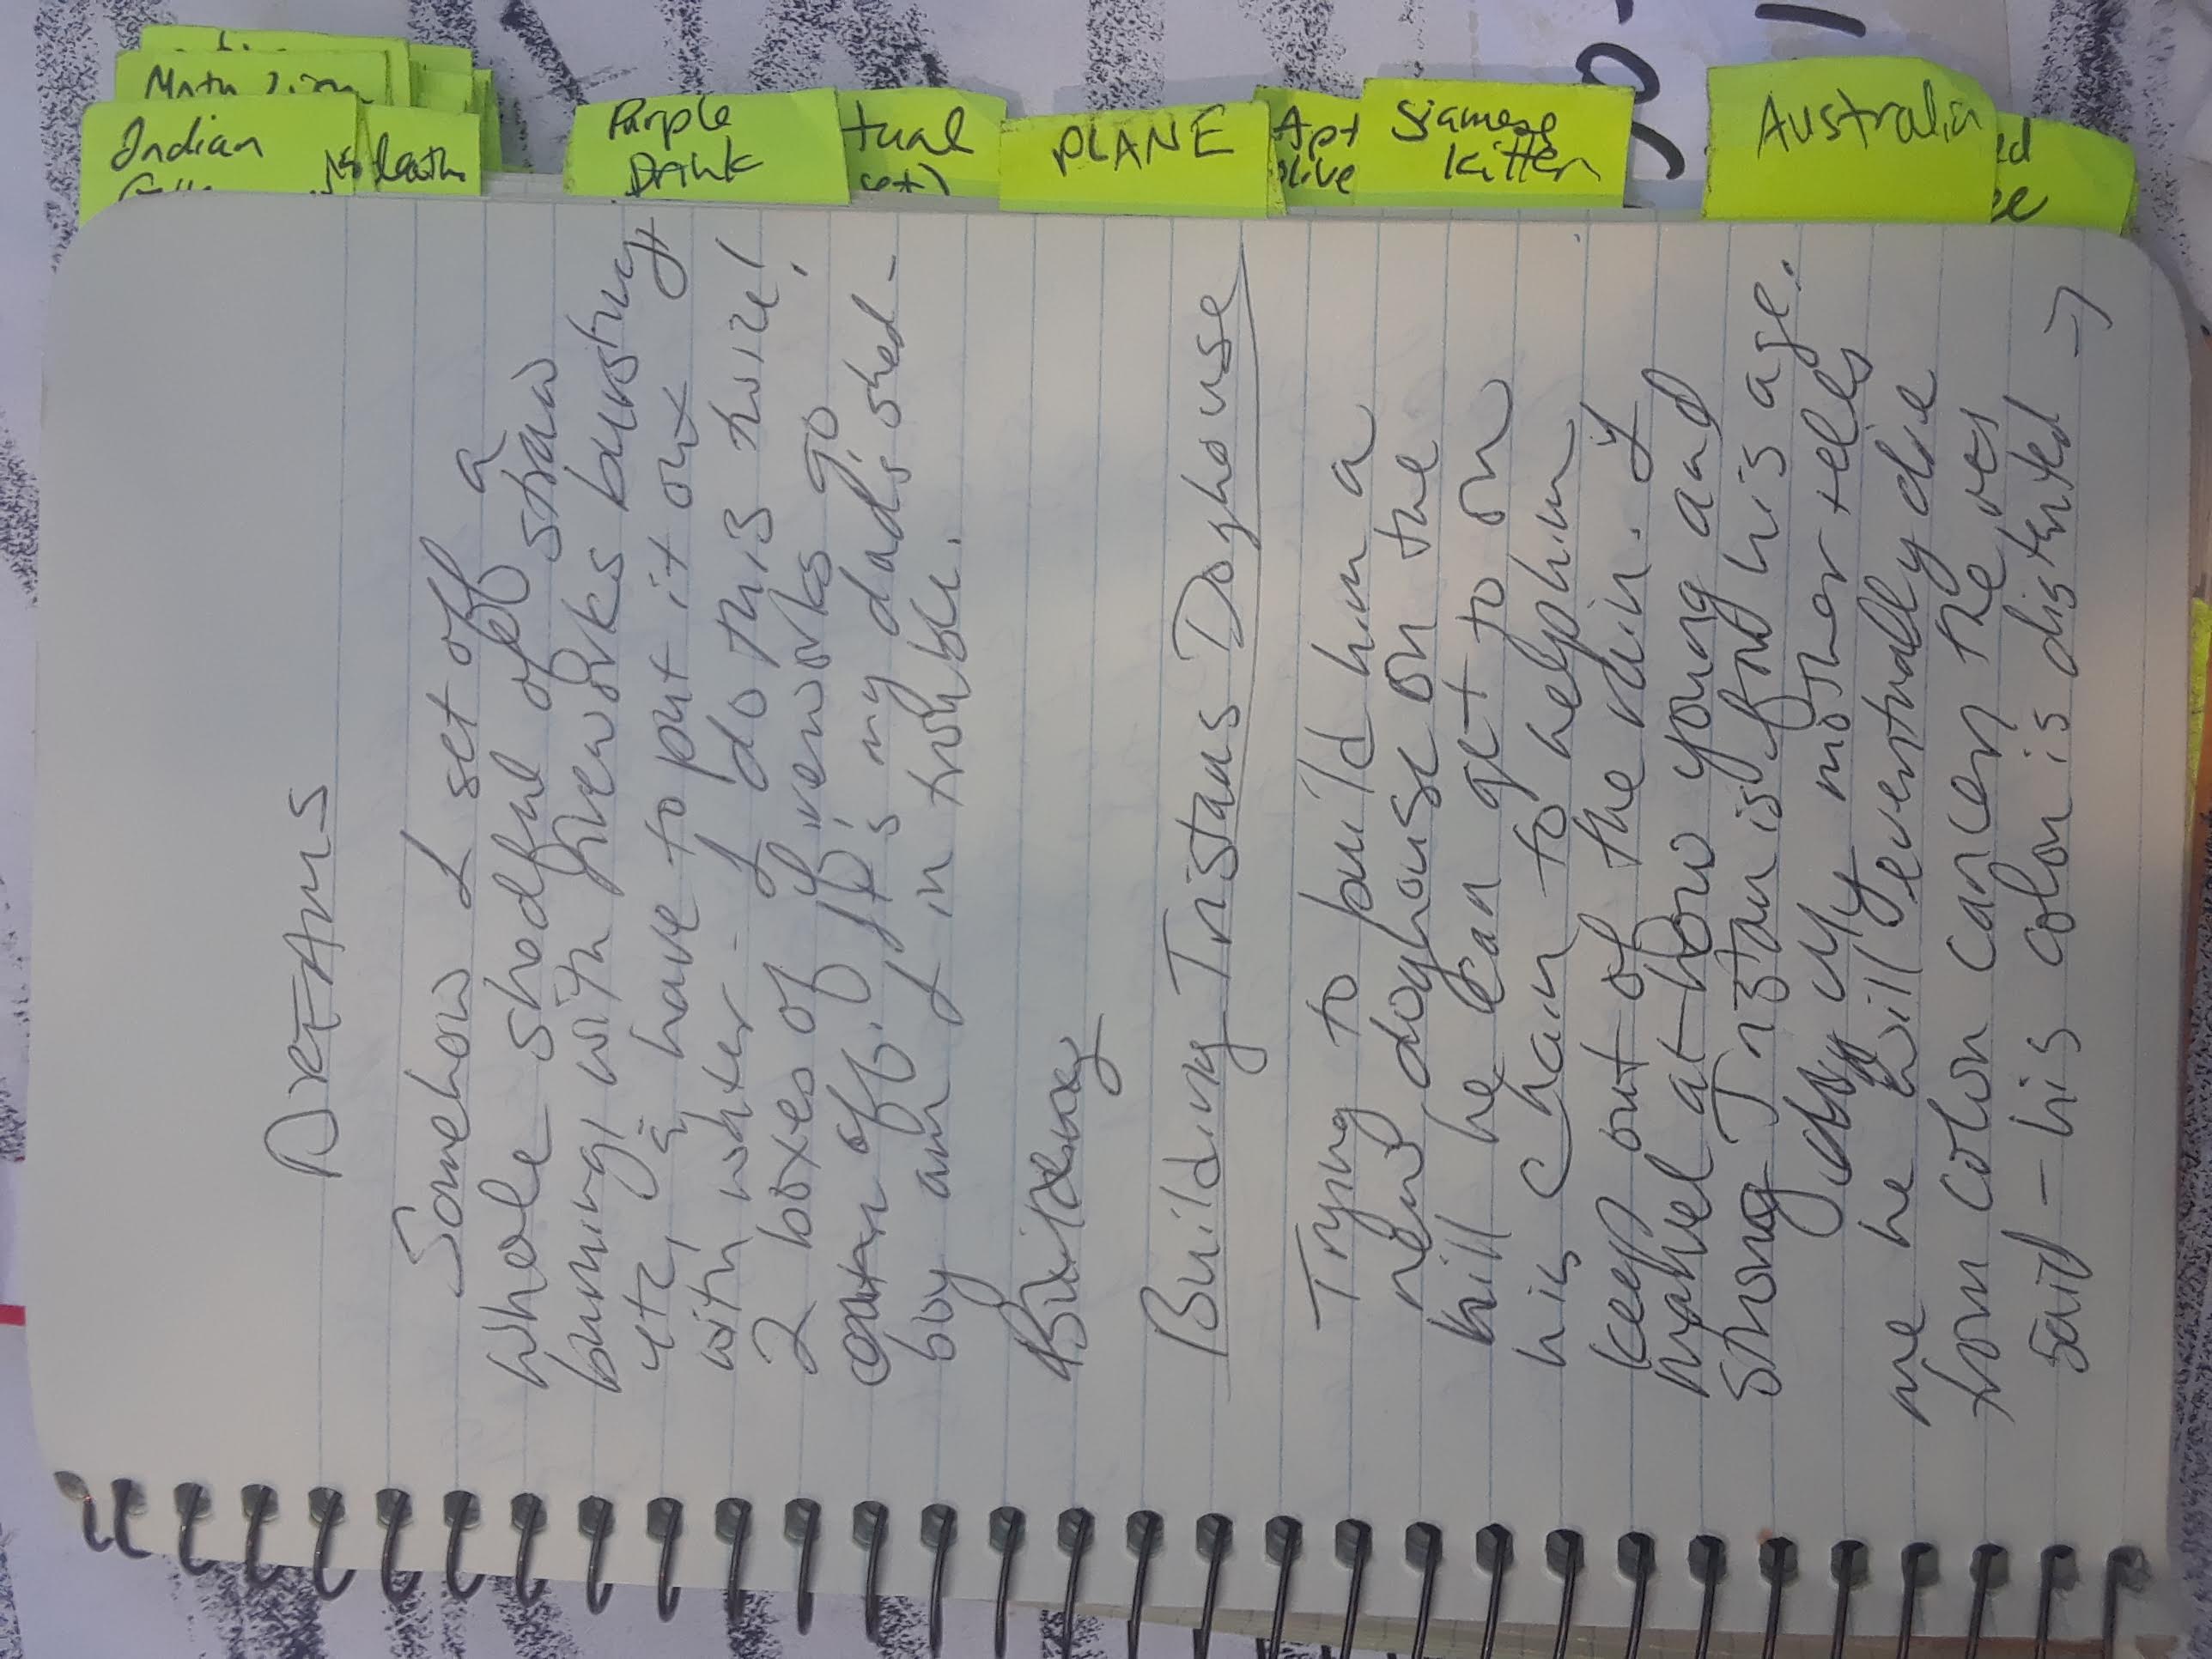 Math
Indian
Death
Purple
Drink
tual
PLANE
Apt
olive
Siamese
Kitten
Australia
ed
DREAMS
Somehow I set off a
whole shedful of straw
burning, with fireworks bursting
etc, & have to put it out
with water - I do this twice!
2 boxes of fireworks go
off. It's my dad's shed -
boy am I in trouble.
Building
Building Tristans Doghouse
Trying to build him a
new doghouse on the
hill he can get to on
his chain to help him
keep out of the rain. I
marvel at how young and
strong Tristan is for his age.
My mother tells
me he will eventually die
from colon cancer the vet
said - his colon is distended →